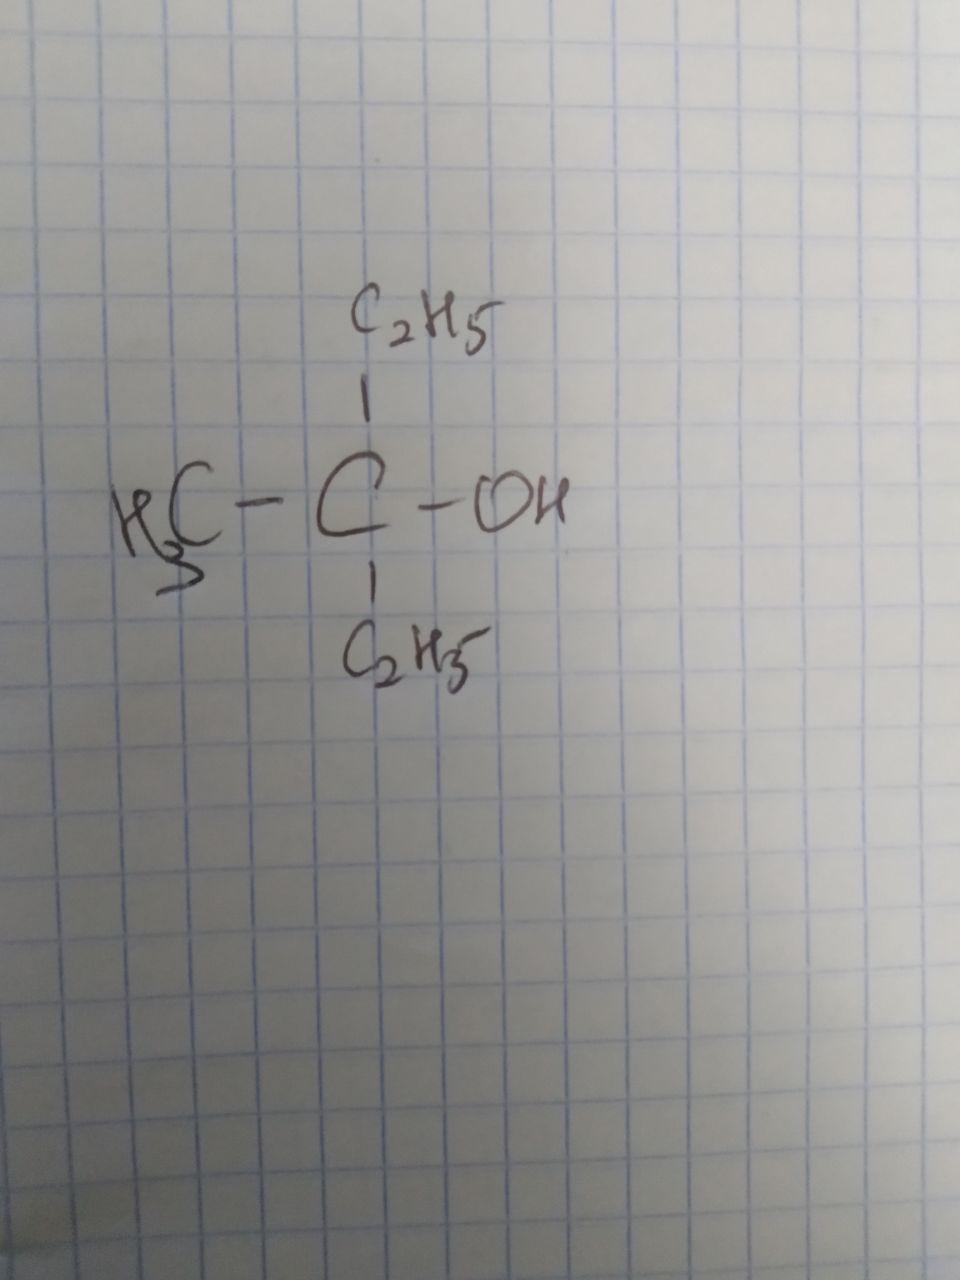 C₂H₅
|
H₃C - C - OH
|
C₂H₅